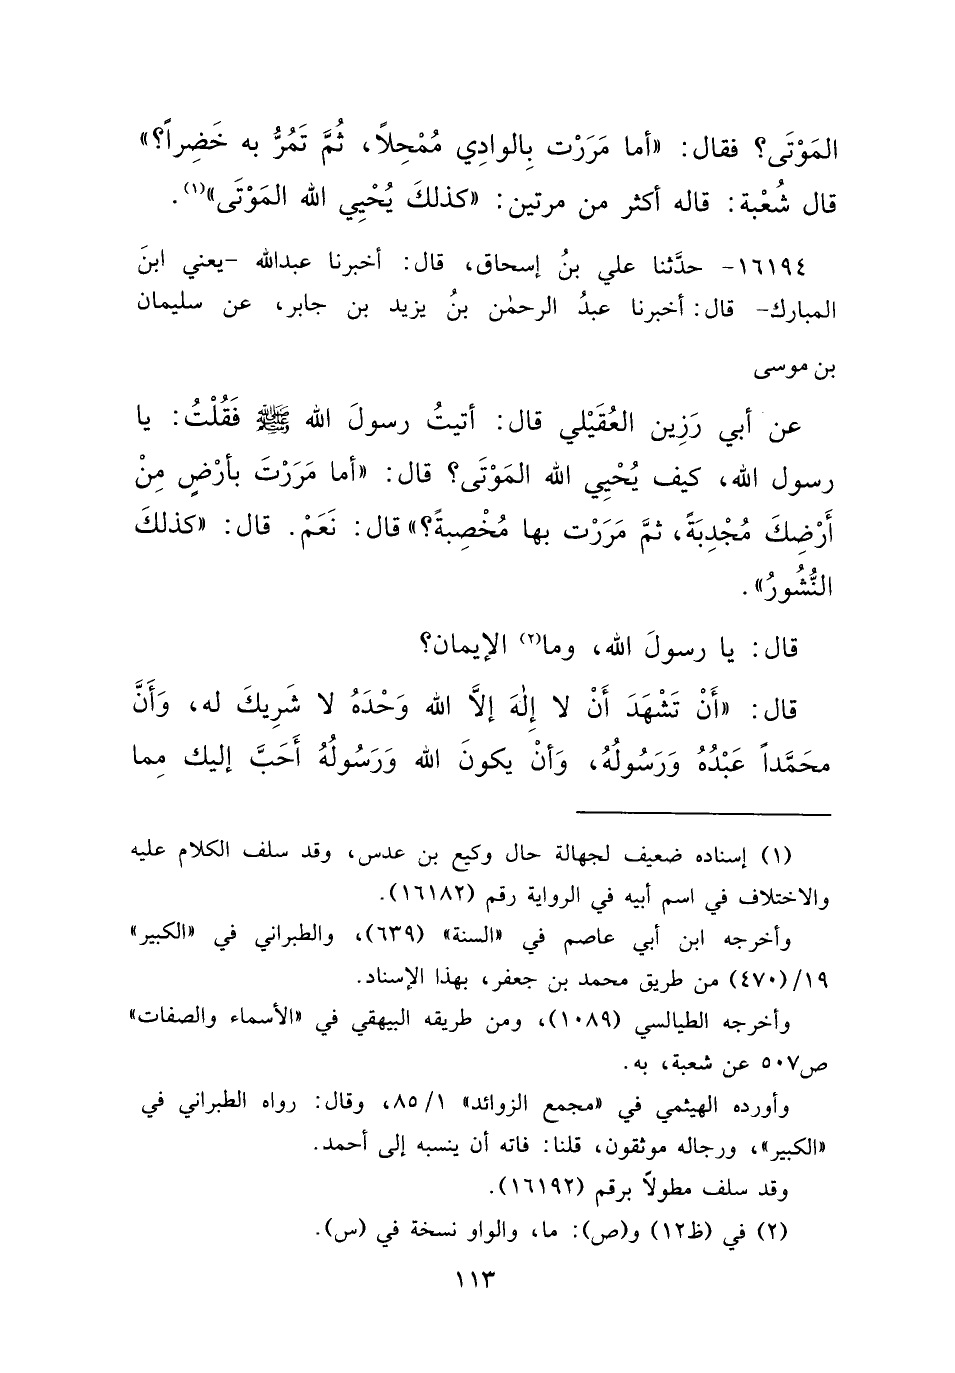 المَوْتَى؟ فقال: «أما مَرَرْت بِالوادِي مُمْحِلاً، ثُمَّ تَمُرُّ به خَضِراً؟»
قال شُعْبة: قاله أكثر من مرتين: «كذلكَ يُحْيِي الله المَوْتَى»(١).
١٦١٩٤- حدَّثنا علي بنُ إسحاق، قال: أخبرنا عبدالله -يعني ابنَ
المبارك- قال: أخبرنا عبدُ الرحمٰن بنُ يزيد بن جابر، عن سليمان
بن موسى
عن أبي رَزِين العُقَيْلي قال: أتيتُ رسولَ الله ﷺ فَقُلْتُ: يا
رسول الله، كيف يُحْيِي الله المَوْتَى؟ قال: «أما مَرَرْتَ بأرْضٍ مِنْ
أَرْضِكَ مُجْدِبَةً، ثمَّ مَرَرْت بها مُخْصِبةً؟» قال: نَعَمْ. قال: «كذلكَ
النُّشُورُ».
قال: يا رسولَ الله، وما(٢) الإيمان؟
قال: «أَنْ تَشْهَدَ أَنْ لا إِلٰهَ إلاَّ الله وَحْدَهُ لا شَرِيكَ له، وَأَنَّ
محَمَّداً عَبْدُهُ وَرَسُولُهُ، وَأنْ يكونَ الله وَرَسُولُهُ أَحَبَّ إليك مِما
(١) إسناده ضعيف لجهالة حال وكيع بن عدس، وقد سلف الكلام عليه
والاختلاف في اسم أبيه في الرواية رقم (١٦١٨٢).
وأخرجه ابن أبي عاصم في «السنة» (٦٣٩)، والطبراني في «الكبير»
١٩/(٤٧٠) من طريق محمد بن جعفر، بهذا الإسناد.
وأخرجه الطيالسي (١٠٨٩)، ومن طريقه البيهقي في «الأسماء والصفات»
ص٥٠٧ عن شعبة، به.
وأورده الهيثمي في «مجمع الزوائد» ١/ ٨٥، وقال: رواه الطبراني في
«الكبير»، ورجاله موثقون، قلنا: فاته أن ينسبه إلى أحمد.
وقد سلف مطولاً برقم (١٦١٩٢).
(٢) في (ظ١٢) و(ص): ما، والواو نسخة في (س).
١١٣